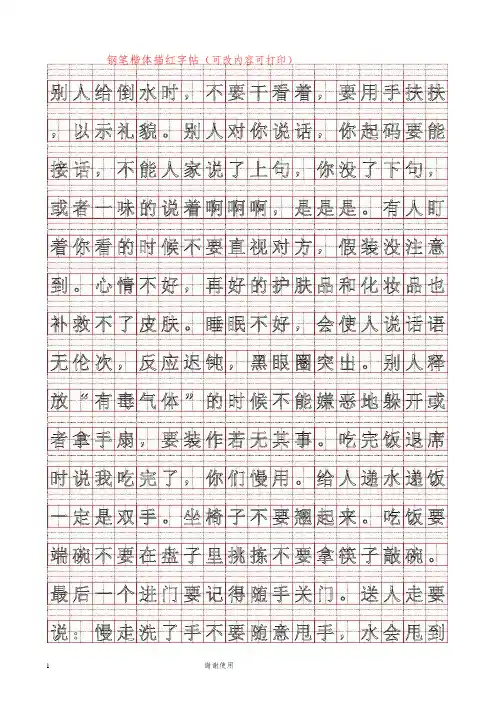 钢笔楷体描红字帖（可改内容可打印）
别人给倒水时，不要干看着，要用手扶扶
，以示礼貌。别人对你说话，你起码要能
接话，不能人家说了上句，你没了下句，
或者一味的说着啊啊啊，是是是。有人盯
着你看的时候不要直视对方，假装没注意
到。心情不好，再好的护肤品和化妆品也
补救不了皮肤。睡眠不好，会使人说话语
无伦次，反应迟钝，黑眼圈突出。别人释
放“有毒气体”的时候不能嫌恶地躲开或
者拿手扇，要装作若无其事。吃完饭退席
时说我吃完了，你们慢用。给人递水递饭
一定是双手。坐椅子不要翘起来。吃饭要
端碗不要在盘子里挑拣不要拿筷子敲碗。
最后一个进门要记得随手关门。送人走要
说：慢走洗了手不要随意甩手，水会甩到
1 谢谢使用